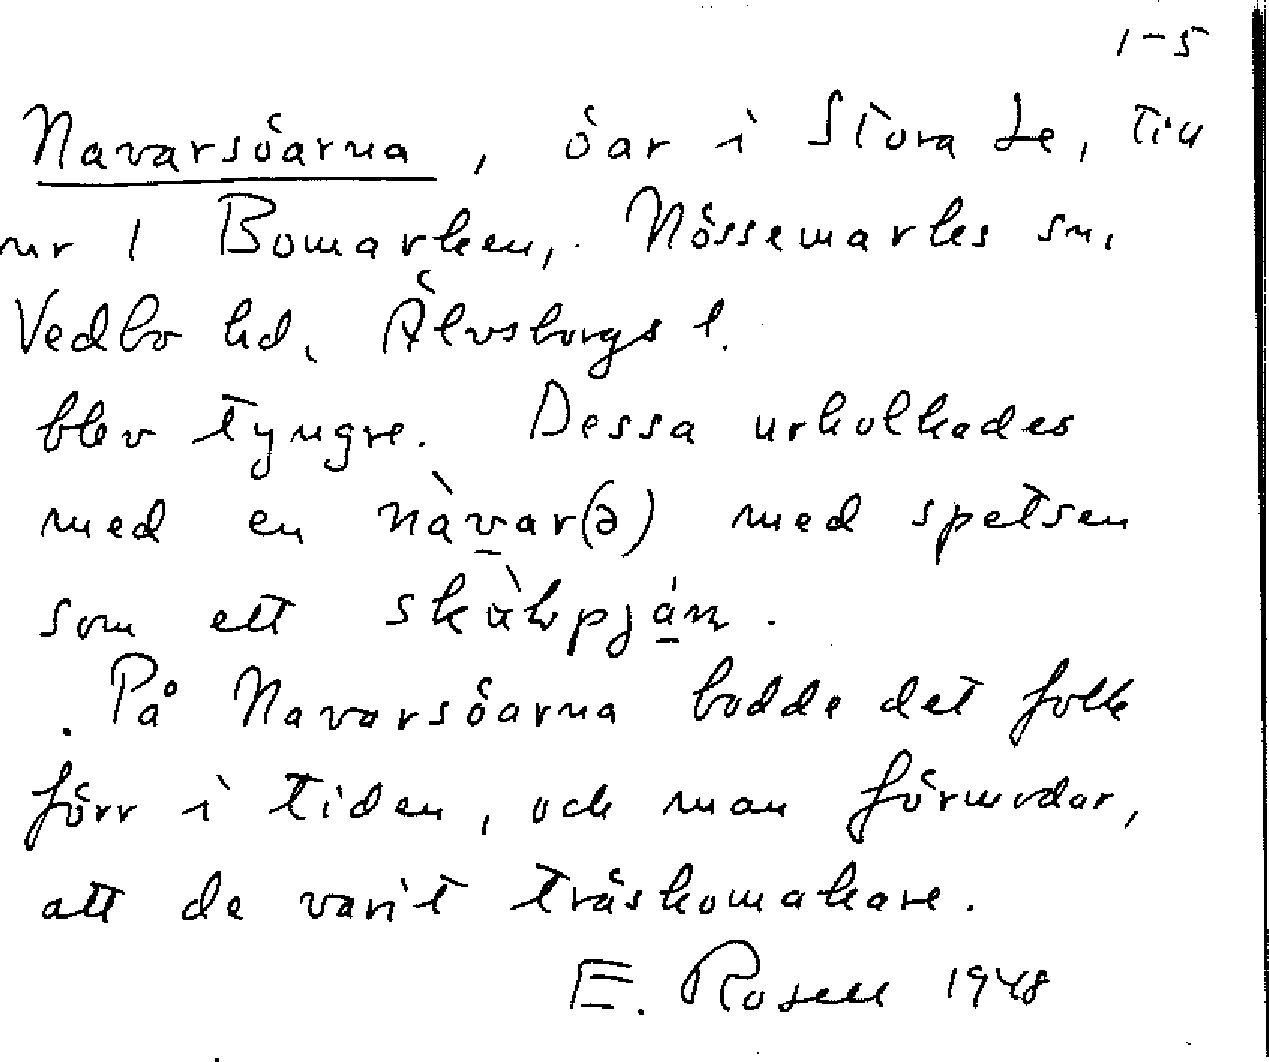 1-5
Navarsöarna, öar i Stora Le, till
nr 1 Bomarken, Nössemarks sn,
Vedbo hd, Älvsborgs l.
blev tyngre. Dessa urholkades
med en nàvar(ə) med spetsen
som ett
På Navarsöarna bodde det folk
förr i tiden, och man förmodar,
att de varit träskomakare.
E. Rosell 1948